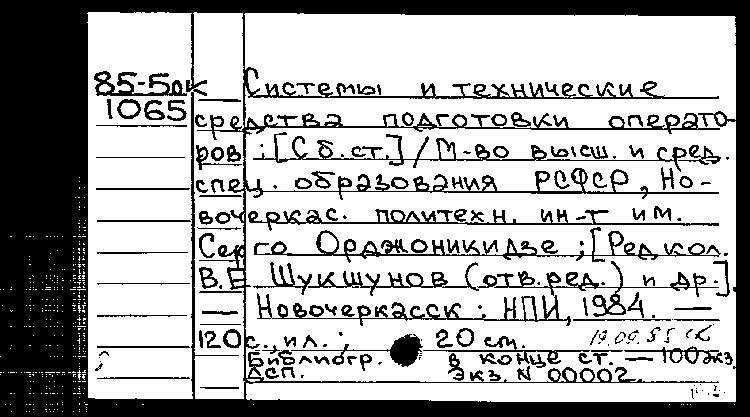 85-5 ДК Системы и технические
1065 средства подготовки операто-
ров ; [Сб.ст.] / М-во высш. и сред.
спец. образования РСФСР, Но-
вочеркас. политехн. ин-т им.
Серго Орджоникидзе ; [Ред.кол.
В.Е Шукшунов (отв.ред.) и др.].
— Новочеркасск : НПИ, 1984. —
120 с., ил. ; 20 см. 19.09.85
Библиогр. в конце ст. — 100 экз.
Дсп. Экз. N 00002.